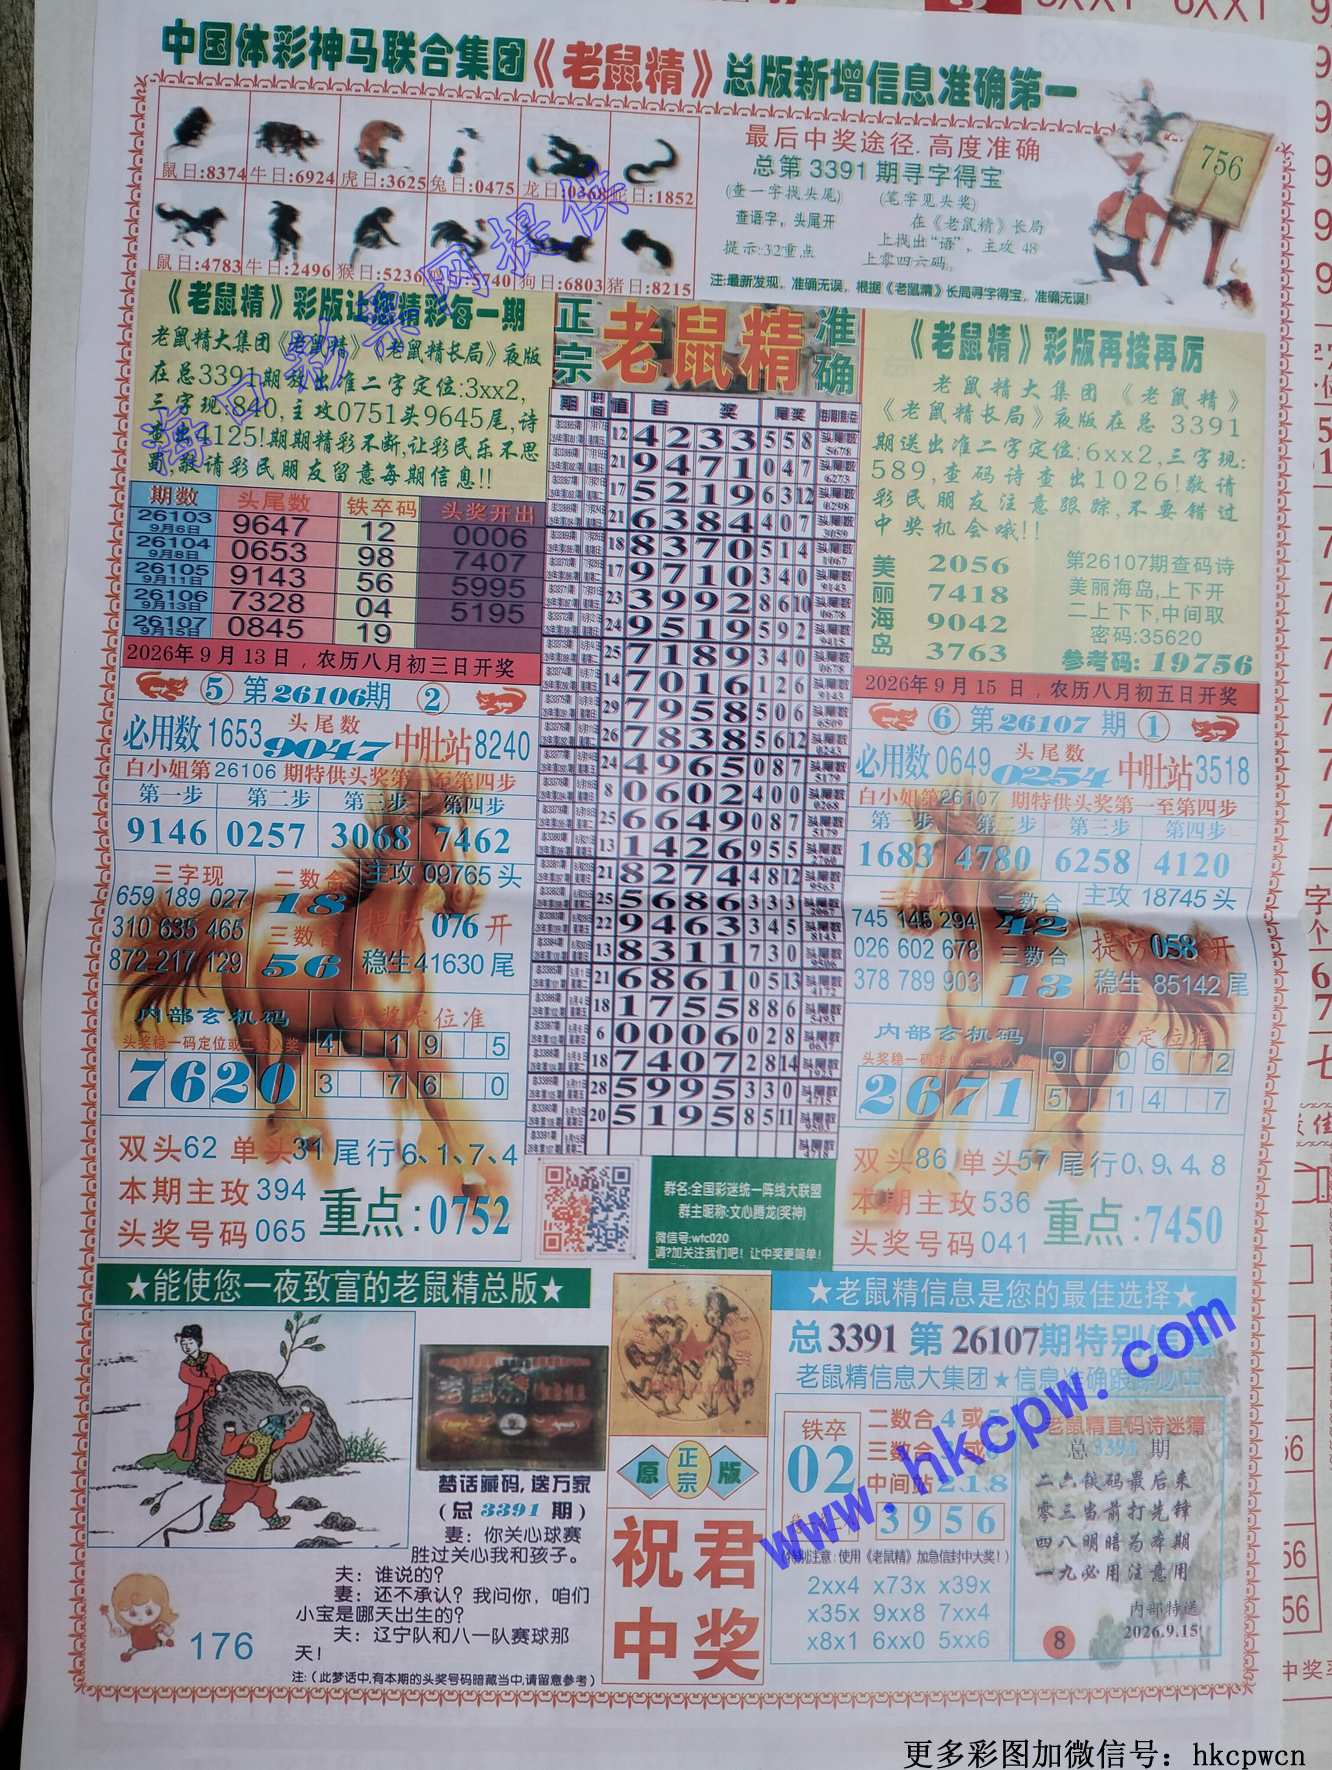 中国体彩神马联合集团《老鼠精》总版新增信息准确第一
鼠日:8374 牛日:6924 虎日:3625 兔日:0475 龙日:0368 蛇日:1852
鼠日:4783 牛日:2496 猴日:5236 5740 狗日:6803 猪日:8215
最后中奖途径.高度准确
总第3391期寻字得宝
(查一字找头尾) (笔字见头奖)
查语字，头尾开
提示:32重点
在《老鼠精》长局
上找出“语”，主攻48
上零四六码。
注:最新发现，准确无误，根据《老鼠精》长局寻字得宝，准确无误!
756
《老鼠精》彩版让您精彩每一期
老鼠精大集团《老鼠精》《老鼠精长局》夜版
在总3391期 出准二字定位:3xx2,
三字现:840,主攻0751头9645尾,诗
查出4125!期期精彩不断,让彩民乐不思
蜀,敬请彩民朋友留意每期信息!!
期数 头尾数 铁卒码 头奖开出
26103 9月6日 9647 12 0006
26104 9月8日 0653 98 7407
26105 9月11日 9143 56 5995
26106 9月13日 7328 04 5195
26107 9月15日 0845 19
2026年9月13日，农历八月初三日开奖
⑤ 第26106期 ②
必用数1653 头尾数 9047 中肚站8240
白小姐第26106期特供头奖第一至第四步
第一步 第二步 第三步 第四步
9146 0257 3068 7462
三字现
659 189 027
310 635 465
872 217 129
二数合
18
三数合
56
主攻 09765 头
提防 076 开
稳生 41630 尾
内部玄机码
头奖稳一码定位或二数入奖
7620
头奖定位准
4 1 9 5
3 7 6 0
双头62 单头31 尾行6、1、7、4
本期主攻394
头奖号码065
重点:0752
正宗 老鼠精 准确
期 时间 值 首奖 尾奖
12 4233 558 头尾数 5678
21 9471 047 头尾数 6273
17 5219 6312 头尾数 0298
21 6384 407 头尾数 3059
18 8370 514 头尾数 1067
17 9710 340 头尾数 9143
23 3992 8610 头尾数 0678
24 9519 592 头尾数 9415
25 7189 340 头尾数 0678
14 7016 126 头尾数 9143
29 7958 506 头尾数 6509
26 7838 5612 头尾数 0243
24 4965 087 头尾数 5179
8 0602 400 头尾数 0268
25 6649 087 头尾数 5179
13 1426 955 头尾数 2760
21 8274 4812 头尾数 9563
25 5686 333 头尾数
22 9463 345 头尾数 8143
13 8311 730 头尾数 9506
21 6861 0513 头尾数 4172
18 1755 886 头尾数 5493
6 0006 028 头尾数 0637
18 7407 2814 头尾数 1923
28 5995 330 头尾数 4715
20 5195 8511 头尾数 9503
头尾数 4718
群名:全国彩迷统一阵线大联盟
群主昵称:文心腾龙(奖神)
微信号:wtc020
请?加关注我们吧！让中奖更简单！
《老鼠精》彩版再接再厉
老鼠精大集团《老鼠精》
《老鼠精长局》夜版在总3391
期送出准二字定位:6xx2,三字现:
589,查码诗查出1026!敬请
彩民朋友注意跟踪,不要错过
中奖机会哦!!
美丽海岛
2056
7418
9042
3763
第26107期查码诗
美丽海岛,上下开
二上下下,中间取
密码:35620
参考码:19756
2026年9月15日，农历八月初五日开奖
⑥ 第26107期 ①
必用数0649 头尾数 0254 中肚站3518
白小姐第26107期特供头奖第一至第四步
第一步 第二步 第三步 第四步
1683 4780 6258 4120
三字现
745 145 294
026 602 678
378 789 903
二数合
42
三数合
13
主攻 18745 头
提防 058 开
稳生 85142 尾
内部玄机码
头奖稳一码定位或二数入奖
2671
头奖定位准
9 0 6 2
5 1 4 7
双头86 单头57 尾行0、9、4、8
本期主攻536
头奖号码041
重点:7450
★能使您一夜致富的老鼠精总版★
梦话藏码,送万家
(总3391期)
妻：你关心球赛
胜过关心我和孩子。
夫：谁说的?
妻：还不承认?我问你，咱们
小宝是哪天出生的?
夫：辽宁队和八一队赛球那
天!
176
注:(此梦话中,有本期的头奖号码暗藏当中,请留意参考)
原 正宗 版
祝君中奖
★老鼠精信息是您的最佳选择★
总3391第26107期特别
老鼠精信息大集团★信息准确跟踪必中
铁卒
02
二数合4或5
三数合
中间站 2.1.8
3956
特别注意:使用《老鼠精》加急信封中大奖!)
2xx4 x73x x39x
x35x 9xx8 7xx4
x8x1 6xx0 5xx6
老鼠精直码诗迷猜
总3391期
二六铁码最后来
零三当前打先锋
四八明暗为本期
一九必用注意用
内部特送
2026.9.15
8
www.hkcpw.com
更多彩图加微信号：hkcpwcn